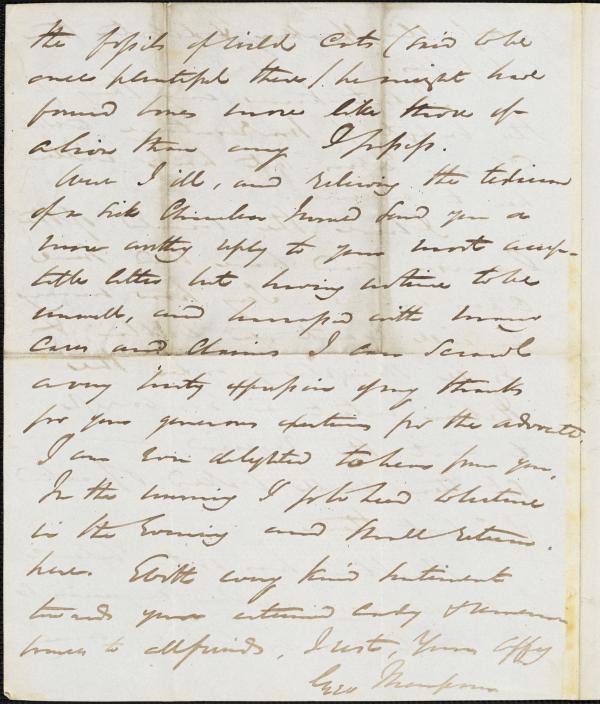 the fossils of wild cats (said to be
once plentiful there) he might have
found bones more like those of
a lion than any I possess.
Were I ill, and relieving the tedium
of a sick Chamber I would send you a
more worthy reply to your most accep-
table letter but having no time to be
unwell, and harrassed with many
Cares and Claims I can Scrawl
a very hasty expression of my thanks
for your generous exertions for the advocate.
I am ever delighted to hear from you.
In the morning I go to Leed to lecture
in the Evening and shall return
here. With every kind sentiment
towards your esteemed Lady & remem
brances to all friends, I rest, Yours affy
Geo Thompson